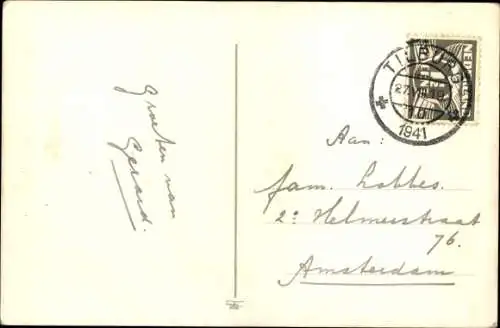 Groeten van
Gerard.
TILBURG
1941
NEDERLAND
Aan:
fam. Lobbes.
2e Helmersstraat
76.
Amsterdam